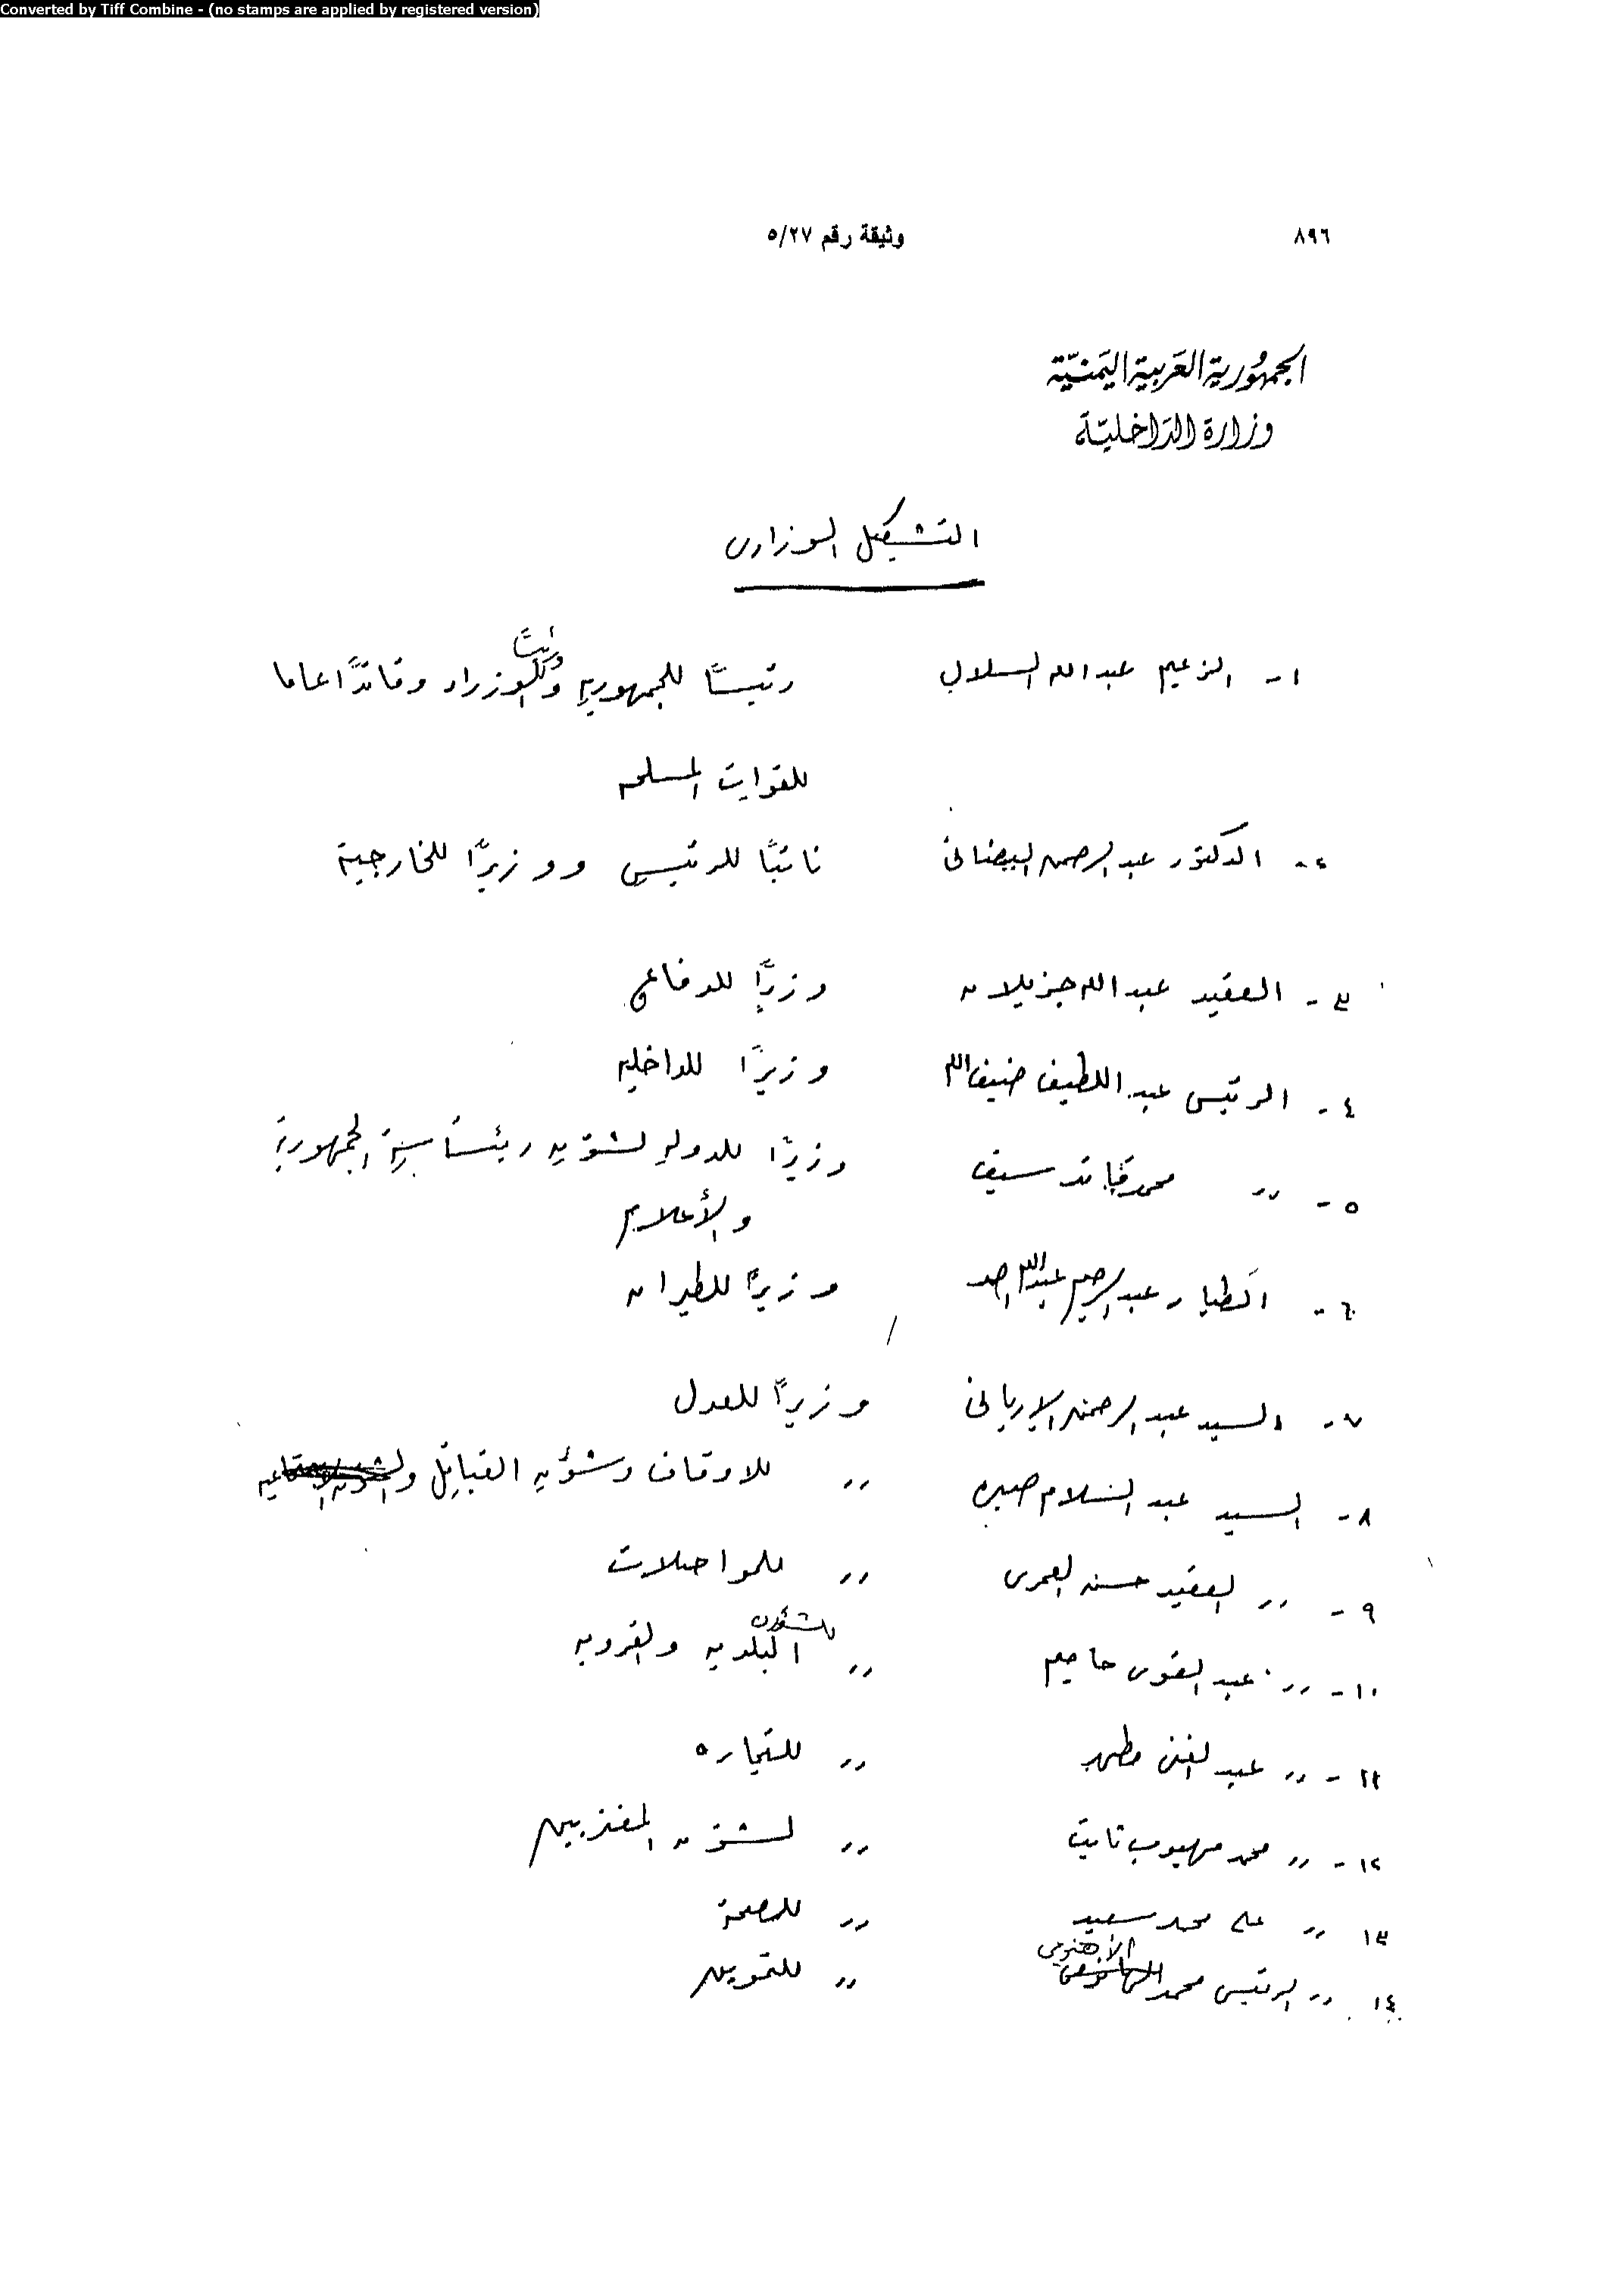 Converted by Tiff Combine - (no stamps are applied by registered version)
٨٩٦ وثيقة رقم ٥/٢٧
الجمهورية العربية اليمنية
وزارة الداخلية
التشكيل الوزارى
١- الزعيم عبد الله السلال رئيسًا للجمهورية ورئيسًا للوزراء وقائدًا عاما
للقوات المسلحه
٢- الدكتور عبد الرحمن البيضانى نائبًا للرئيس ووزيرًا للخارجية
٣- العقيد عبد الله جزيلان وزيرًا للدفاع
٤- الرئيس عبد اللطيف ضيف الله وزيرًا للداخليه
٥- 〃 محمد قائد سيف وزيرًا للدوله لشئون رئاسة الجمهورية
والأعلام
٦- الطيار عبد الرحيم عبد الله وزيرًا للطيران
٧- السيد عبد الرحمن الاريانى وزيرًا للعدل
٨- السيد عبد السلام صبره 〃 للاوقاف وشؤن القبائل
٩- 〃 العقيد حسن العمرى 〃 للمواصلات
١٠- 〃 عبد القوى حاميم 〃 للشؤون البلديه والقرويه
١١- 〃 عبد الغنى مطهر 〃 للتجاره
١٢- 〃 محمد مهيوب ثابت 〃 لشئون المغتربين
١٣ 〃 على محمد سعيد 〃 للصحة
١٤ 〃 الرئيس محمد الأهنومي 〃 للتموين